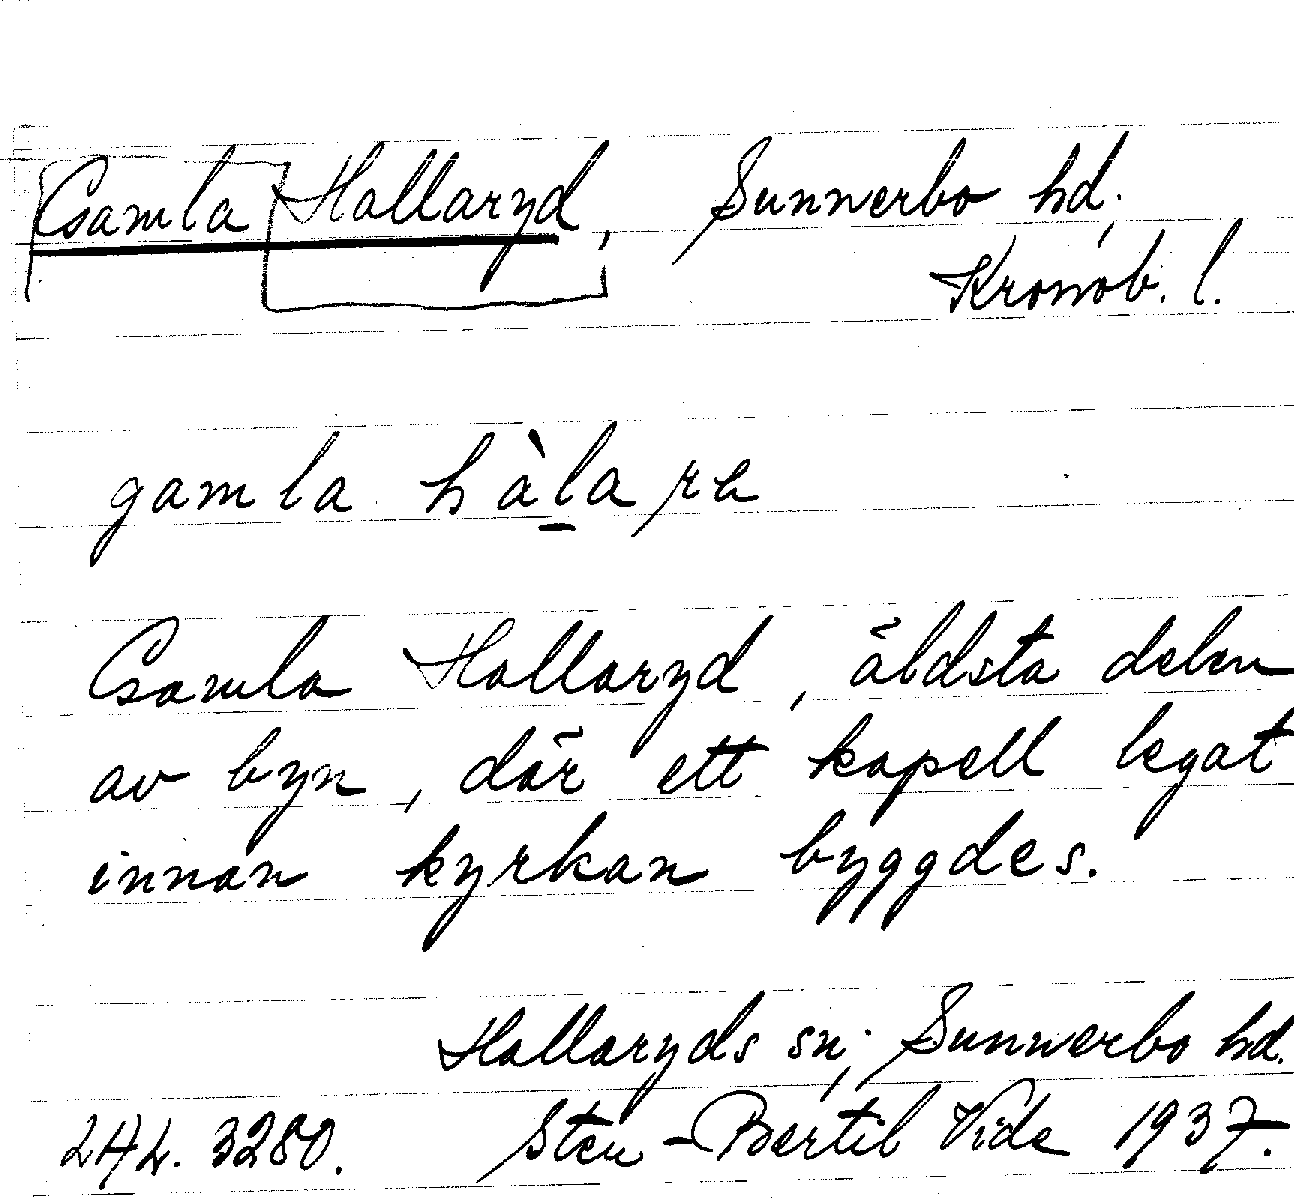 Gamla Hallaryd, Sunnerbo hd.
Kronob. l.
gamla hàlare
Gamla Hallaryd, äldsta delen
av byn, där ett kapell legat
innan kyrkan byggdes.
Hallaryds sn; Sunnerbo hd.
3280. Sten-Bertil Vide 1937.